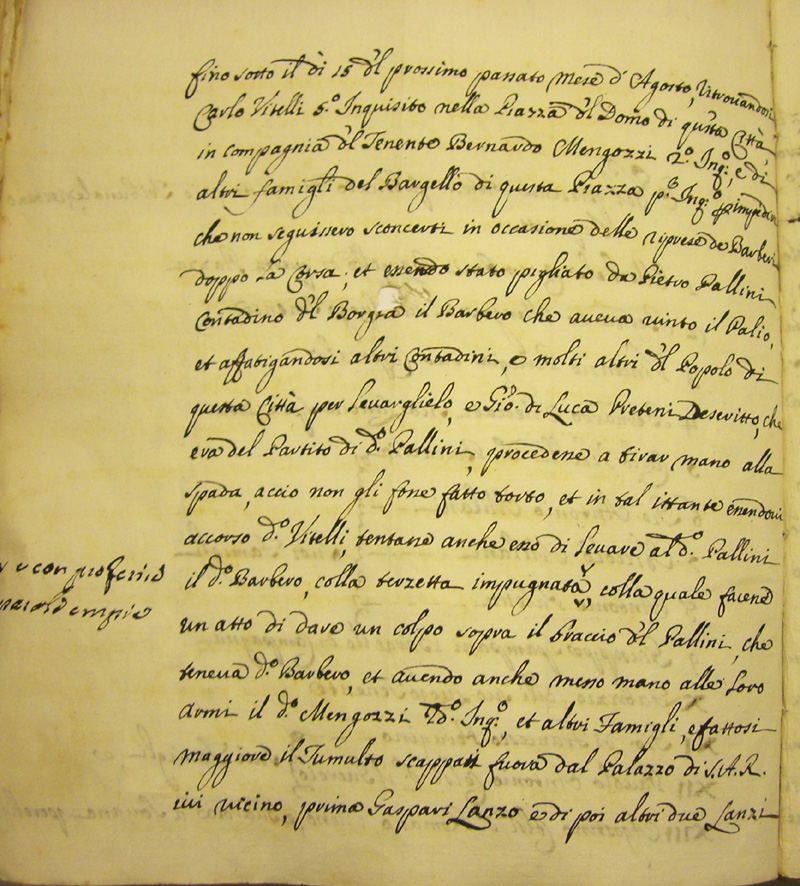 fino sotto il dì 15 d'l prossimo passato Mese d'Agosto, ritrovandosi
Carlo Vitelli 5.º Inquisito nella Piazza d'l Domo di qu'sta Città,
in compagnia d'l Tenente Bernardo Mengozzi 2.º Inq.º, e di
altri famigli del Bargello di questa Piazza p.º Inq.º
che non seguissero sconcerti in occasione delle riprese de Barberi
doppo la Corsa, et essendo stato pigliato da Pietro Pallini
Contadino d'l Borgia il Barbero che aveva vinto il Palio,
et affatigandosi altri Contadini, e molti altri d'l Popolo di
questa Città per levarglielo, e Gio. di Luca Preteni Descritto, che
era del Partito di d.º Pallini, procedesse a tirar mano alla
spada, acciò non gli fosse fatto torto, et in tal istante essendovi
accorso d.º Vitelli, tentasse anche esso di levare al d.º Pallini
il d.º Barbero, colla terzetta impugnata, colla quale facesse
e con proferire
parole empie
un atto di dare un colpo sopra il braccio d'l Pallini, che
teneva d.º Barbero, et avendo anche messo mano alle loro
armi il d.º Mengozzi 2.º Inq.º, et altri Famigli, e fattosi
maggiore il Tumulto scappati fuora dal Palazzo di S.A.R.
ivi vicino, prima Gaspari Lanzo e di poi altri due Lanzi